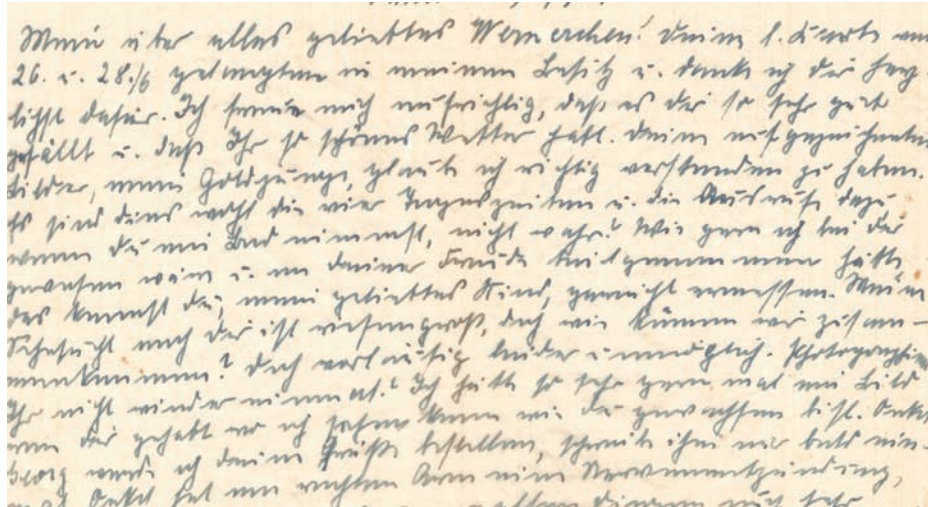 Mein über alles geliebtes Wernerchen! Deine l. Karte vom
26. u. 28./6 gelangten in meinen Besitz u. danke ich dir herz-
lichst dafür. Ich freue mich aufrichtig, daß es dir so sehr gut
gefällt u. daß Ihr so schönes Wetter habt. Deine aufgezeichneten
Bilder, mein Goldjunge, glaube ich richtig verstanden zu haben.
Es sind dies wohl die vier Tageszeiten u. die Ausrufe dazu
wenn du ein Bad nimmst, nicht wahr? Wie gern ich bei dir
gewesen wäre u. an deiner Freude teilgenommen hätte
das kannst du, mein geliebtes Kind, garnicht ermessen. Meine
Sehnsucht nach dir ist riesengroß, doch wie können wir zusam-
menkommen? Doch vorläufig leider unmöglich. Photographiert
Ihr nicht wieder einmal? Ich hätte so sehr gern mal ein Bild
von dir gehabt wo ich sehen kann wie du gewachsen bist. Onkel
Georg werde ich deine Grüße bestellen, schreibe ihm nur bald ein-
mal. Onkel hat am rechten Arm eine Nervenentzündung,